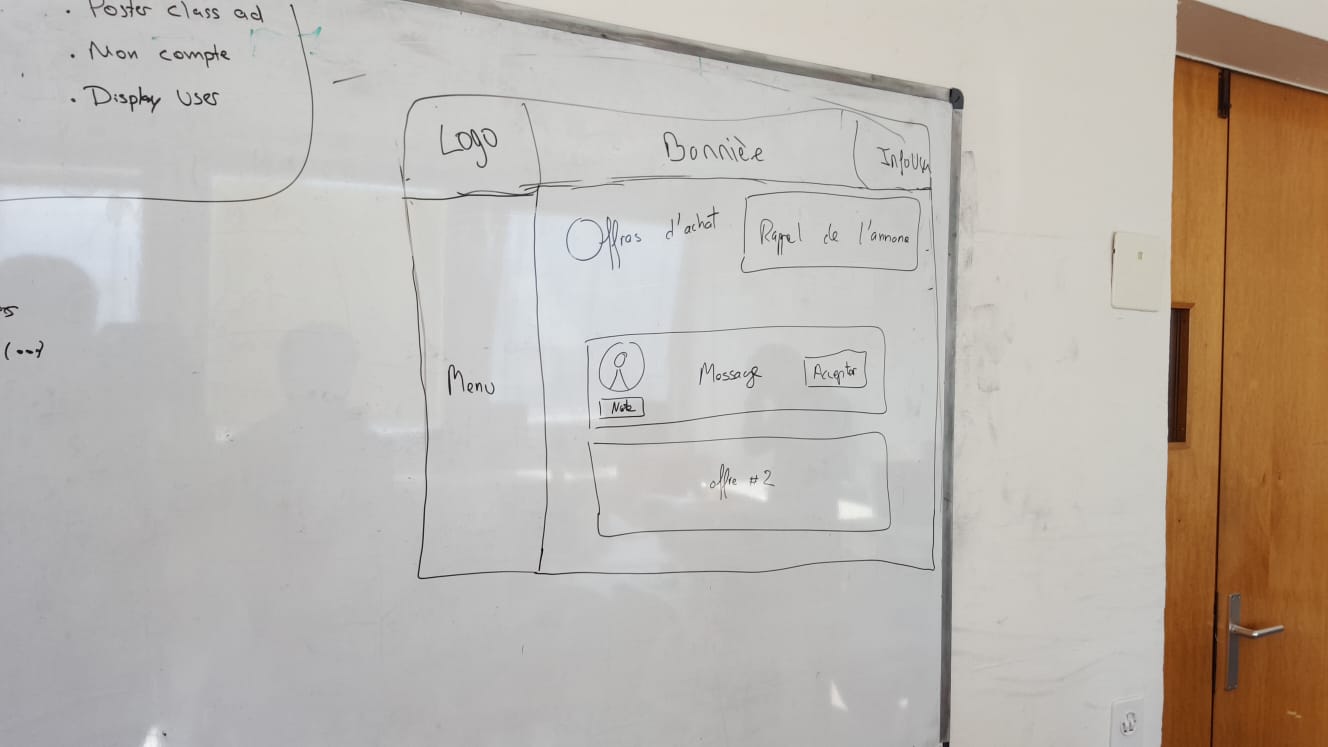 • Poster class ad
• Mon compte
• Display Users
(...)
Logo
Bonnière
Offres d'achat
Rappel de l'annone
Menu
Message
Accepter
Note
offre #2